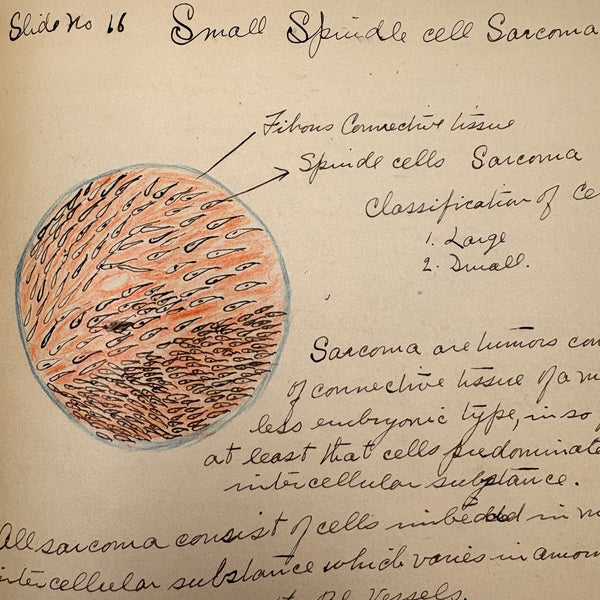 Slide No 16 Small Spindle cell Sarcoma
Fibrous Connective tissue
Spinde cells Sarcoma
Classification of Ce
1. Large
2. Small.
Sarcoma are tumors con
of connective tissue of a m
less embryonic type, in so f
at least that cells predominate
intercellular substance.
All sarcoma consist of cells imbedded in m
intercellular substance which varies in amoun
Vessels.